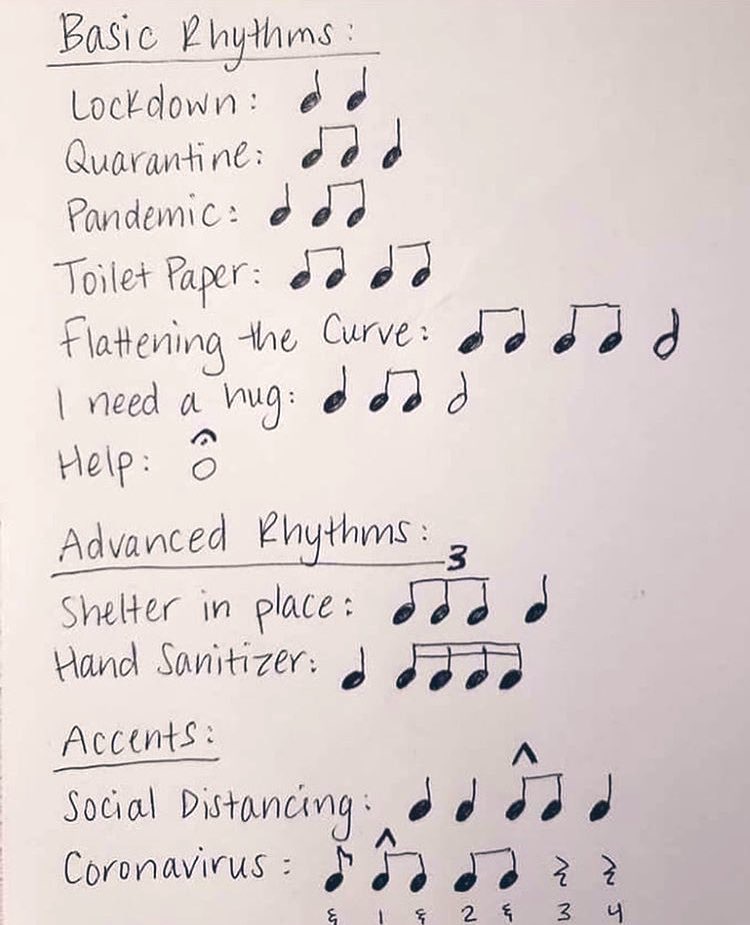 Basic Rhythms:
Lockdown:
Quarantine:
Pandemic:
Toilet Paper:
Flattening the Curve:
I need a hug:
Help:
Advanced Rhythms:
3
Shelter in place:
Hand Sanitizer:
Accents:
Social Distancing:
Coronavirus:
& 1 & 2 & 3 4